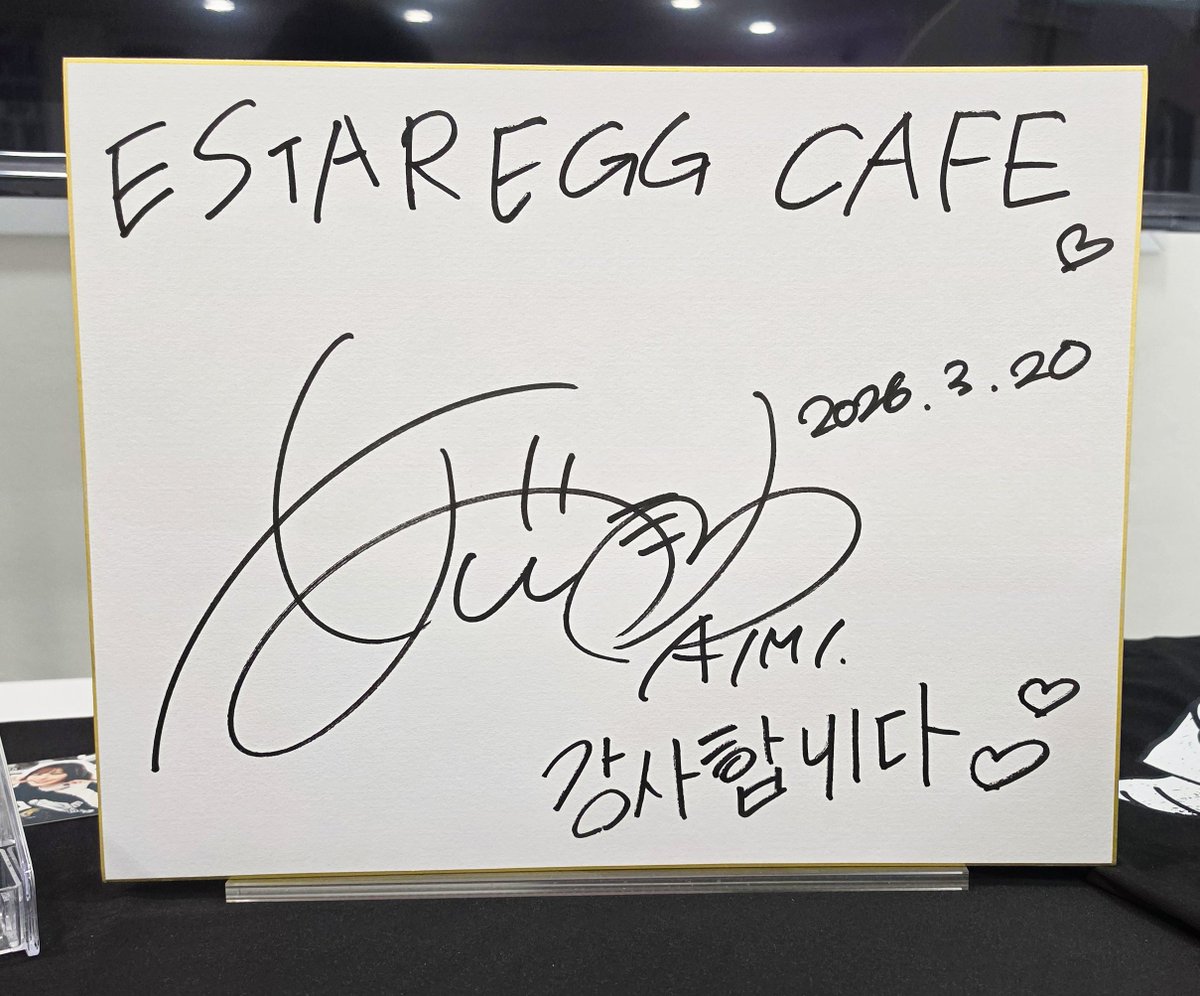 ESTAREGG CAFE
2026.3.20
AIMI.
감사합니다